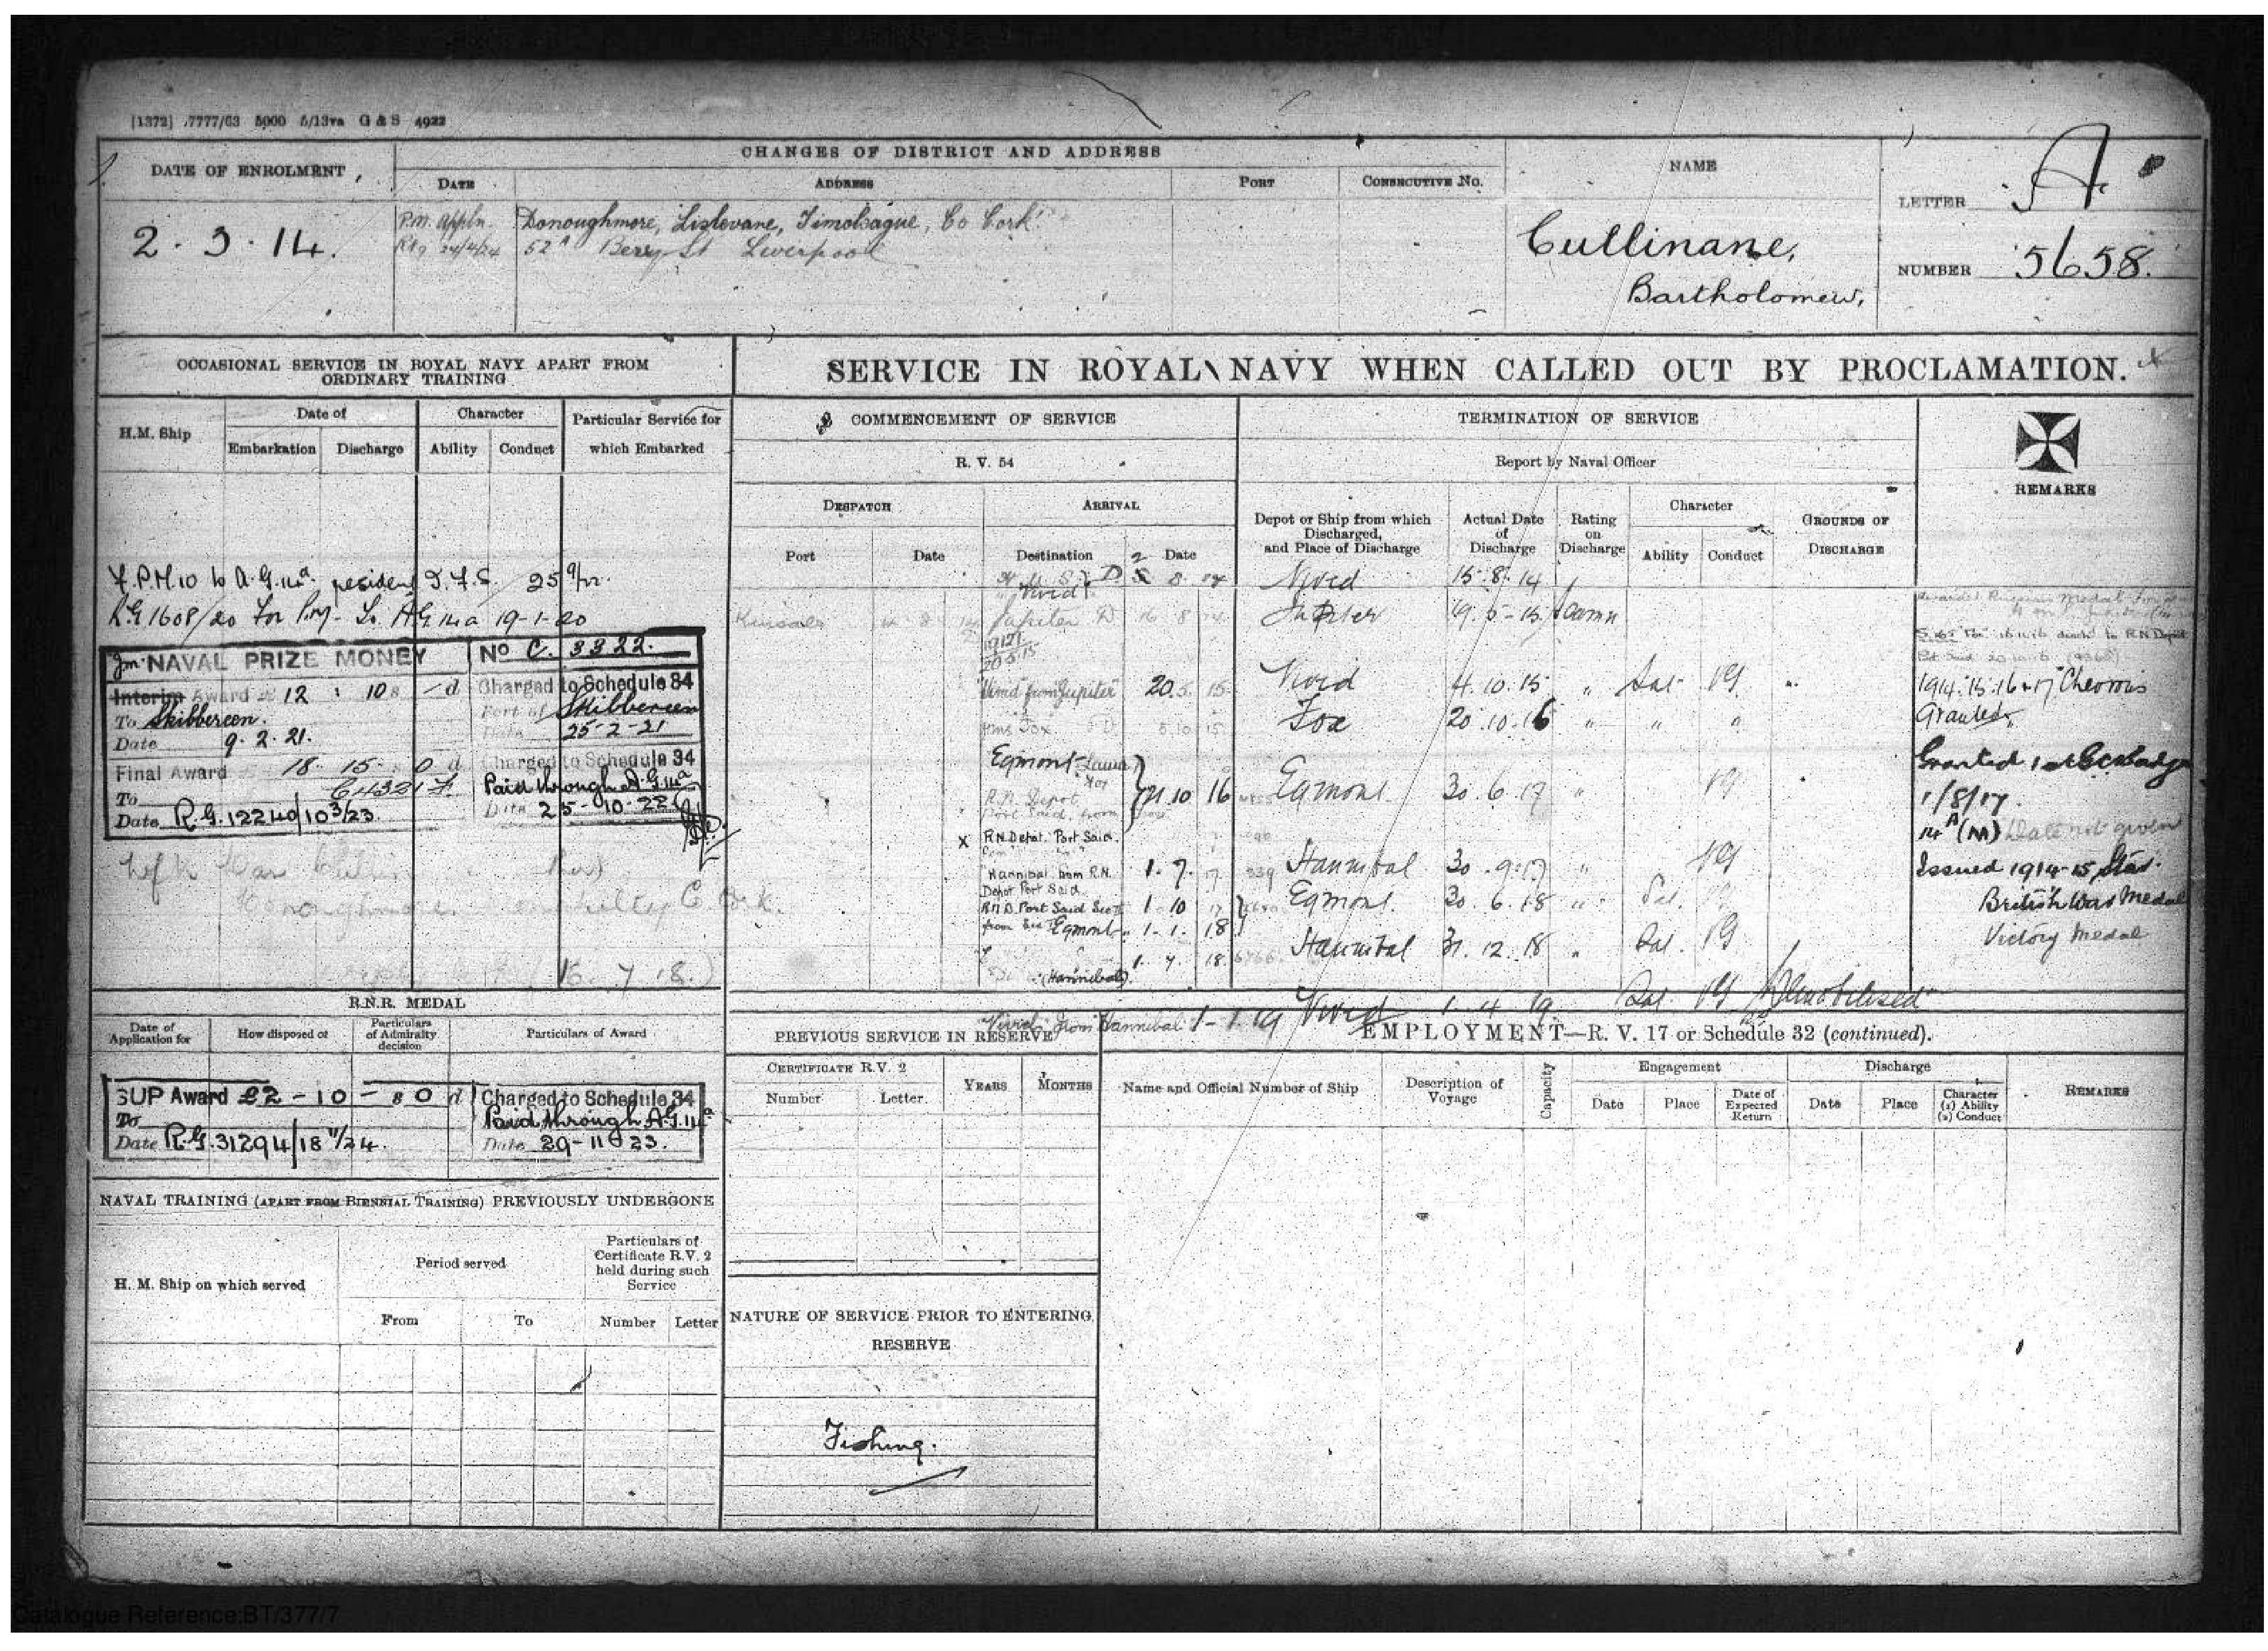 [1372] .7777/63 5000 5/13va G & S 4922
DATE OF ENROLMENT
CHANGES OF DISTRICT AND ADDRESS
DATE
ADDRESS
PORT
CONSECUTIVE No.
NAME
LETTER A.
NUMBER 5658.
2.3.14.
P.M. Appln. Donoughmore, Lislevane, Timoleague, Co Cork.
24/4/24 52A Berry St Liverpool
Cullinane,
Bartholomew,
OCCASIONAL SERVICE IN ROYAL NAVY APART FROM
ORDINARY TRAINING
H.M. Ship
Date of
Embarkation
Discharge
Character
Ability
Conduct
Particular Service for
which Embarked
25 9/12
R.G 1608/20 For 19-1-20
NAVAL PRIZE MONEY No C. 3322.
Interim Award 12 : 10 s - d Charged to Schedule 34
To Skibbereen. Port of Skibbereen
Date 9.2.21. Date 25-2-21
Final Award 18. 15 - 0 d Charged to Schedule 34
To Paid through A.G.14a
Date R.G.12240/10 3/23 Date 25-10-22
SERVICE IN ROYAL NAVY WHEN CALLED OUT BY PROCLAMATION.
COMMENCEMENT OF SERVICE
R. V. 54
DESPATCH
ARRIVAL
Port
Date
Destination
Date
TERMINATION OF SERVICE
Report by Naval Officer
Depot or Ship from which
Discharged,
and Place of Discharge
Actual Date
of
Discharge
Rating
on
Discharge
Character
Ability
Conduct
GROUNDS OF
DISCHARGE
REMARKS
Vivid Vivid 15.8.14
Kinsale Jupiter D 16 8 14 Jupiter 19.5-15 Seamn
20.5.15
Vivid from "Jupiter" 20.5.15 Vivid 4.10.15 " Sat VG
HMS Fox D 5.10.15 Fox 20.10.16 " " "
Egmont
R.N. Depot
Port Said from
21.10 16 Egmont 30.6.17 " VG
x R.N. Depot. Port Said.
Hannibal from R.N.
Depot Port Said
1.7.17 Hannibal 30.9.17 " VG
R.N.D. Port Said 1 10 17 Egmont. 30.6.18 " Sat.
Egmont 1.1.18
1.7.18 Hannibal 31.12.18 " Sat. VG
(Hannibal)
Vivid from Hannibal 1-1.19 Vivid 1.4.19 Sat. VG Demobilised
1914.15.16 & 17 Cheveron
Granted
Granted 1st GC badge
1/8/17.
14A (M) Date not given
Issued 1914-15 Star
British War Medal
Victory Medal
R.N.R. MEDAL
Date of
Application for
How disposed of
Particulars
of Admiralty
decision
Particulars of Award
SUP Award £2-10-s 0 d Charged to Schedule 34
To Paid through A.G.14a
Date R.G.31294/18 11/24. Date 29-11-23.
NAVAL TRAINING (APART FROM BIENNIAL TRAINING) PREVIOUSLY UNDERGONE
H. M. Ship on which served
Period served
From
To
Particulars of
Certificate R.V. 2
held during such
Service
Number
Letter
PREVIOUS SERVICE IN RESERVE
CERTIFICATE R.V. 2
Number
Letter
YEARS
MONTHS
NATURE OF SERVICE PRIOR TO ENTERING
RESERVE
Fishing.
EMPLOYMENT—R. V. 17 or Schedule 32 (continued).
Name and Official Number of Ship
Description of
Voyage
Capacity
Engagement
Date
Place
Date of
Expected
Return
Discharge
Date
Place
Character
(1) Ability
(2) Conduct
REMARKS
Catalogue Reference:BT/377/7